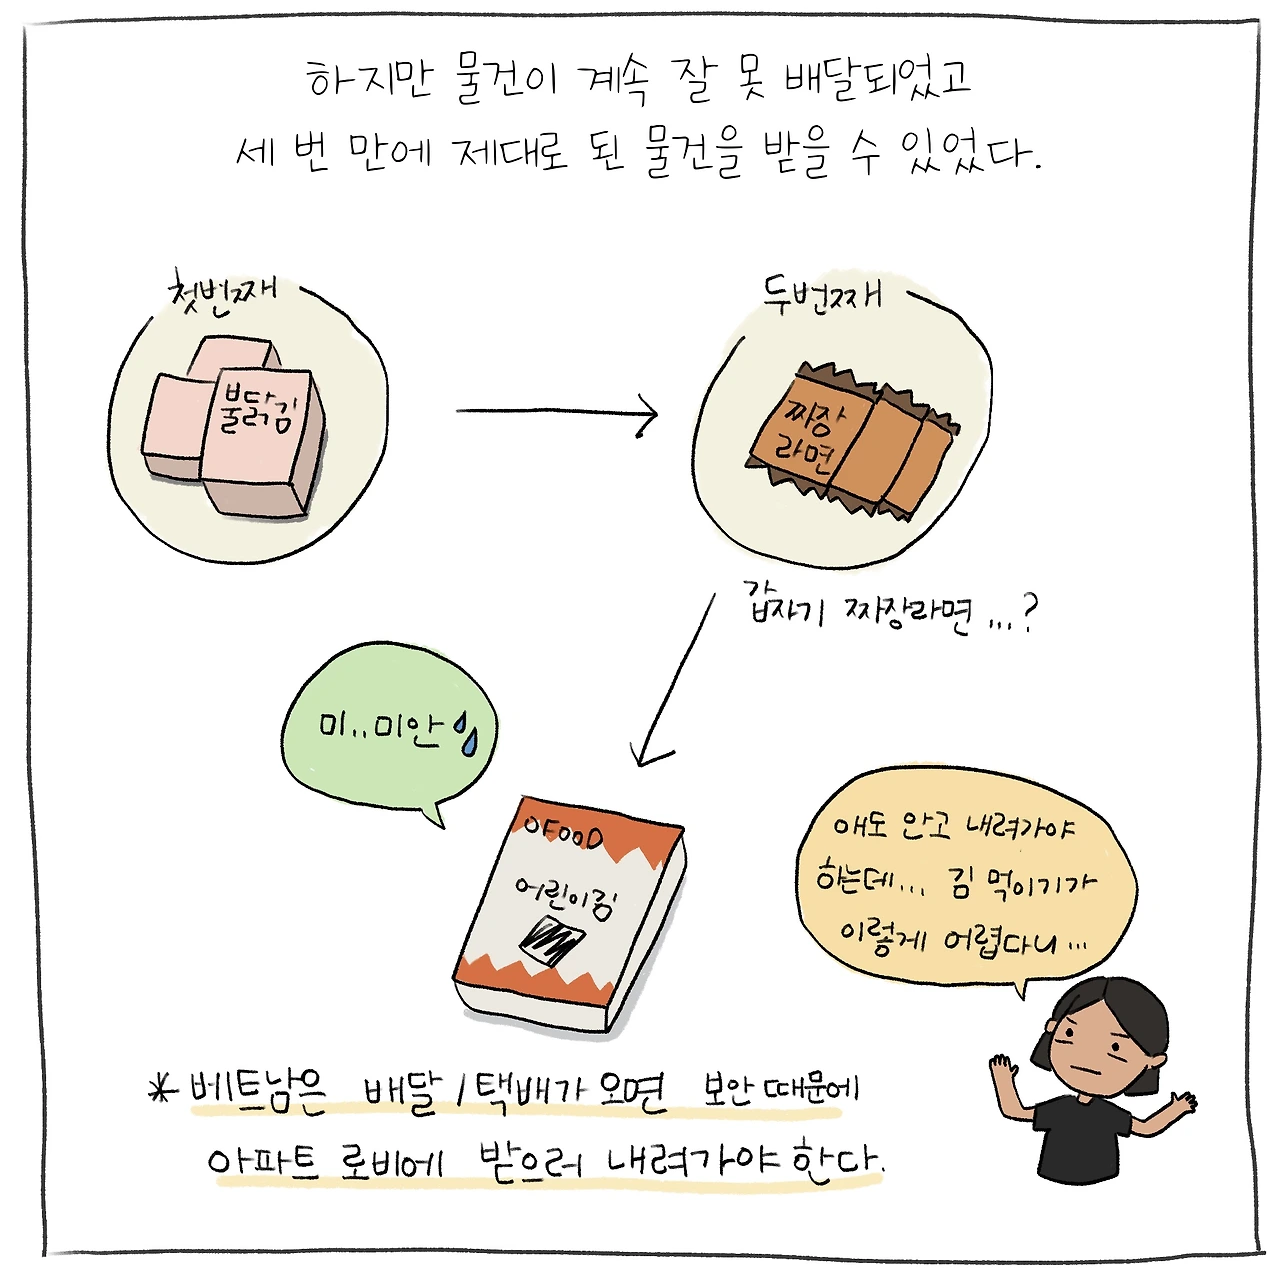 하지만 물건이 계속 잘 못 배달되었고
세 번 만에 제대로 된 물건을 받을 수 있었다.
첫번째
불닭김
두번째
짜장
라면
갑자기 짜장라면 ...?
미..미안
OFOOD
어린이김
애도 안고 내려가야
하는데... 김 먹이기가
이렇게 어렵다니...
* 베트남은 배달/택배가 오면 보안 때문에
아파트 로비에 받으러 내려가야 한다.